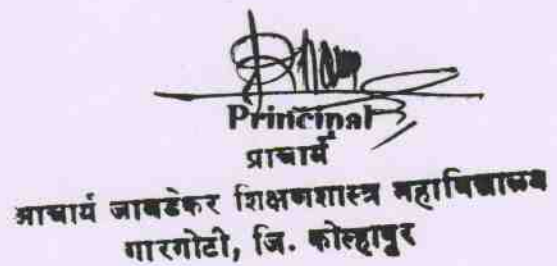 Principal
प्राचार्य
आचार्य जावडेकर शिक्षणशास्त्र महाविद्यालय
गारगोटी, जि. कोल्हापुर